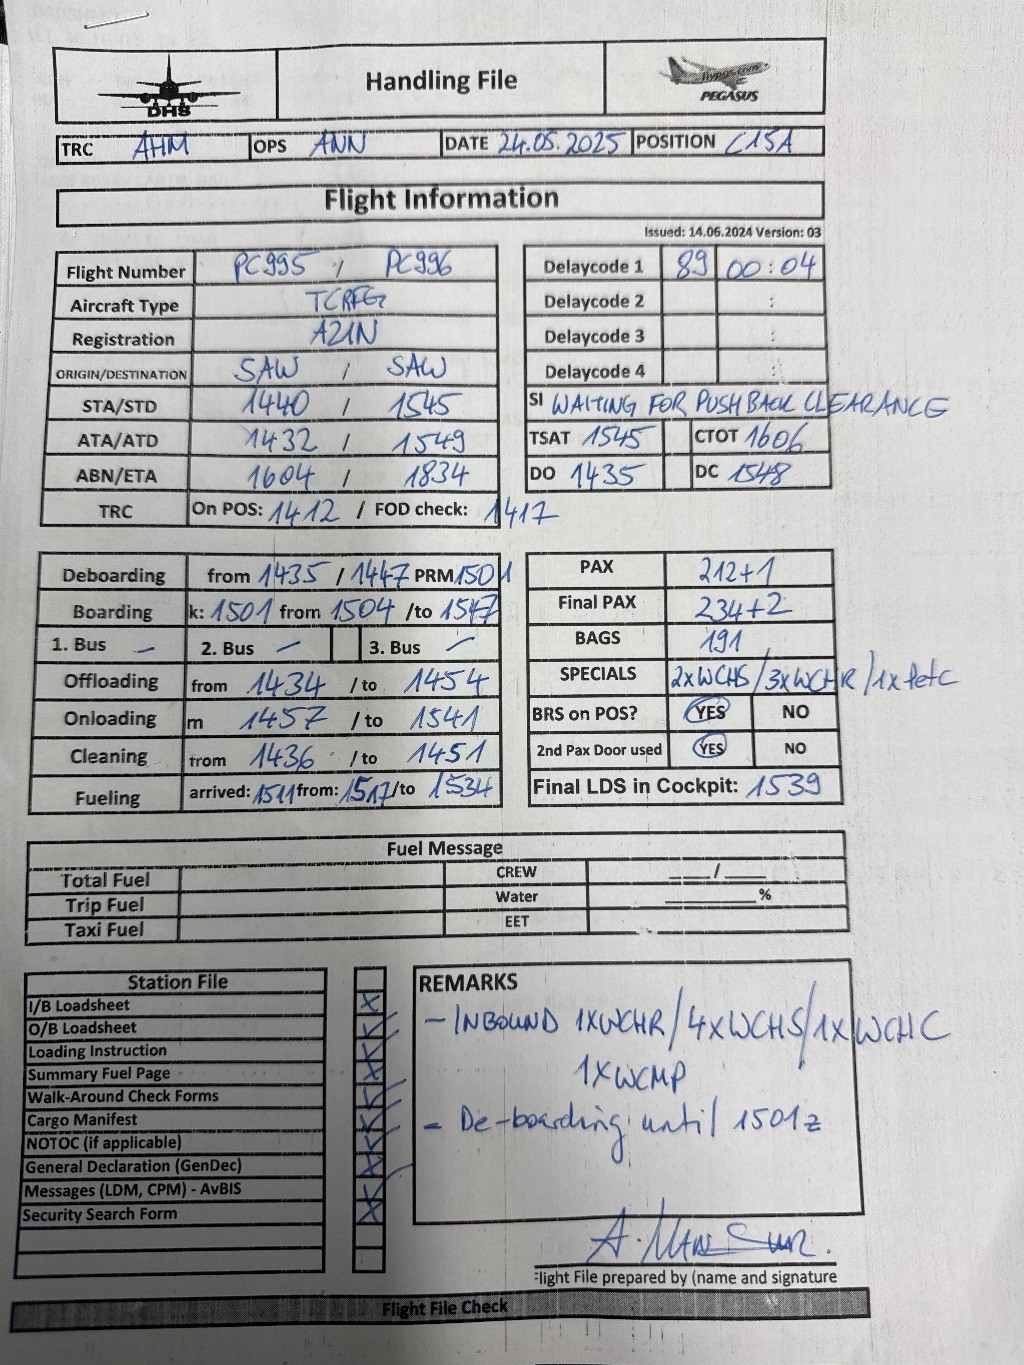 DHS
Handling File
flypgs.com
PEGASUS
TRC AHM OPS ANN DATE 24.05.2025 POSITION C15A
Flight Information
Issued: 14.06.2024 Version: 03
Flight Number PC995 / PC996
Aircraft Type TCRFG
Registration A21N
ORIGIN/DESTINATION SAW / SAW
STA/STD 1440 / 1545
ATA/ATD 1432 / 1549
ABN/ETA 1604 / 1834
TRC On POS: 1412 / FOD check: 1417
Delaycode 1 89 00:04
Delaycode 2 :
Delaycode 3 :
Delaycode 4
SI WAITING FOR PUSHBACK CLEARANCE
TSAT 1545 CTOT 1606
DO 1435 DC 1548
Deboarding from 1435 / 1447 PRM 1501
Boarding k: 1501 from 1504 /to 1547
1. Bus – 2. Bus – 3. Bus –
Offloading from 1434 / to 1454
Onloading m 1457 / to 1541
Cleaning from 1436 / to 1451
Fueling arrived: 1511 from: 1517 /to 1534
PAX 212+1
Final PAX 234+2
BAGS 191
SPECIALS 2xWCHS/3xWCHR/1xPetC
BRS on POS? YES NO
2nd Pax Door used YES NO
Final LDS in Cockpit: 1539
Fuel Message
Total Fuel CREW ___/___
Trip Fuel Water ________%
Taxi Fuel EET
Station File
I/B Loadsheet X
O/B Loadsheet X
Loading Instruction X
Summary Fuel Page X
Walk-Around Check Forms X
Cargo Manifest X
NOTOC (if applicable) X
General Declaration (GenDec) X
Messages (LDM, CPM) - AvBIS X
Security Search Form X
REMARKS
- INBOUND 1XWCHR/4xWCHS/1xWCHC
1XWCMP
- De-boarding until 1501z
A. Man
Flight File prepared by (name and signature
Flight File Check